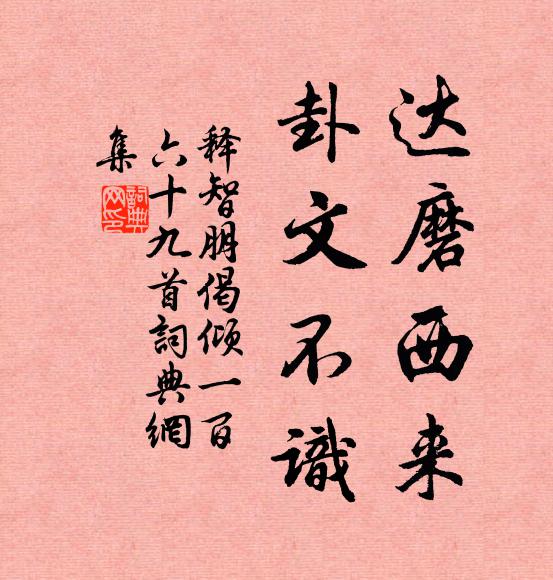 达磨西来
卦文不識
释智朋偈倾一百
六十九首詞典網
集
詞典
网印